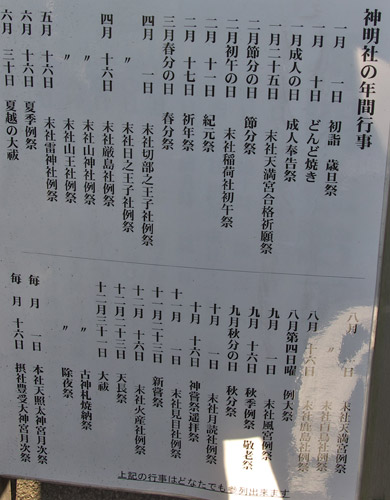 神明社の年間行事
一月 一日 初詣 歳旦祭
一月 十日 どんど焼き
一月成人の日 成人奉告祭
一月二十五日 末社天満宮合格祈願祭
二月節分の日 節分祭
二月初午の日 末社稲荷社初午祭
二月 十一日 紀元祭
二月 十七日 祈年祭
三月春分の日 春分祭
四月 一日 末社切部之王子社例祭
〃 末社日之王子社例祭
四月 十六日 末社厳島社例祭
〃 末社山神社例祭
〃 末社山王社例祭
五月 十六日 末社雷神社例祭
六月 十六日 夏季例祭
六月 三十日 夏越の大祓
八月 一日 末社天満宮例祭
〃 末社白鳥社例祭
八月 十六日 末社鹿島社例祭
八月第四日曜 例大祭
九月 一日 末社風宮例祭
九月 十六日 秋季例祭 敬老祭
九月秋分の日 秋分祭
十月 一日 末社月讀社例祭
十月 十六日 神嘗祭遥拝祭
十一月 一日 末社見目社例祭
十一月二十三日 新嘗祭
十二月 十六日 末社火産社例祭
十二月二十三日 天長祭
十二月三十一日 大祓
〃 古神札焼納祭
〃 除夜祭
毎 月 一日 本社天照太神宮月次祭
毎 月 十六日 摂社豊受大神宮月次祭
上記の行事はどなたでも参列出来ます